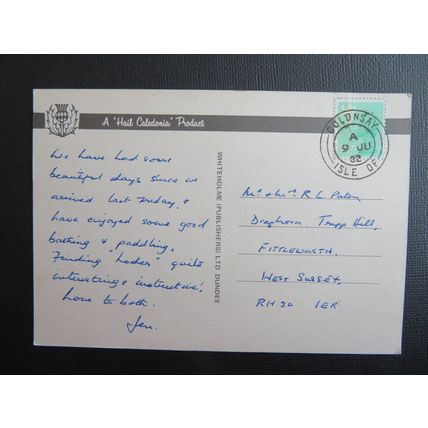 A "Hail Caledonia" Product
We have had some
beautiful days since we
arrived last Friday, &
have enjoyed some good
bathing & paddling,
quite
interesting & instructive!
Love to both.
Jen.
WHITEHOLME (PUBLISHERS) LTD DUNDEE
COLONSAY
A
9 JU
82
ISLE OF
Mr & Mrs R. L. Paton,
Dreghorn, Tripp Hill,
FITTLEWORTH,
WEST SUSSEX,
RH20 1ER